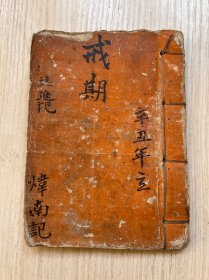 戒期
辛丑年立
煒南記